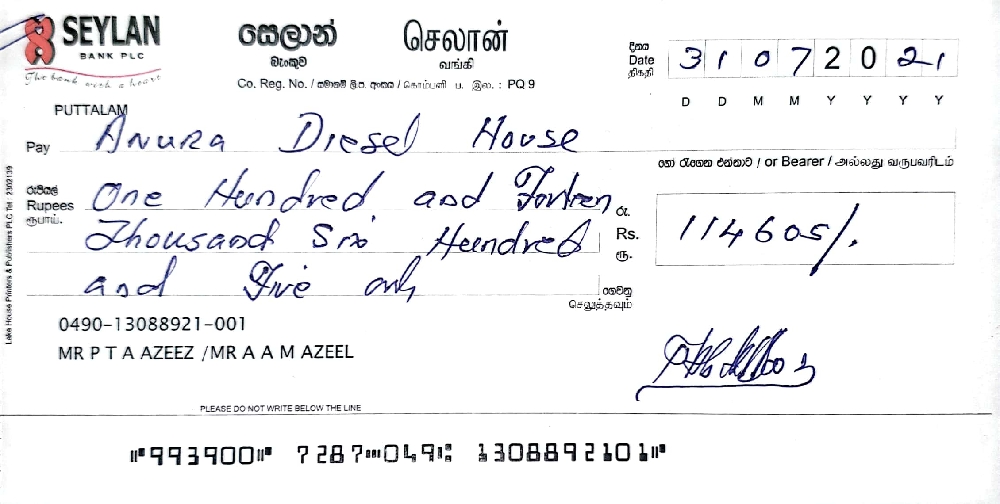 SEYLAN
BANK PLC
The bank with a heart
සෙලාන්
බැංකුව
செலான்
வங்கி
Co. Reg. No. / සමාගම් ලි.ප. අංකය / கொம்பனி ப. இல. : PQ 9
දිනය
Date
திகதி
31072021
D D M M Y Y Y Y
PUTTALAM
Pay Anura Diesel House
හෝ රැගෙන එන්නාට / or Bearer / அல்லது வருபவரிடம்
රුපියල්
Rupees
ரூபாய்.
One Hundred and Forteen
Thousand Six Hundred
and Five only
රු.
Rs.
ரூ.
114605/.
ගෙවනු
செலுத்தவும்
0490-13088921-001
MR P T A AZEEZ /MR A A M AZEEL
PLEASE DO NOT WRITE BELOW THE LINE
Lake House Printers & Publishers PLC Tel : 2302139
⑈993900⑈ 7287⑉049⑆ 1308892101⑈